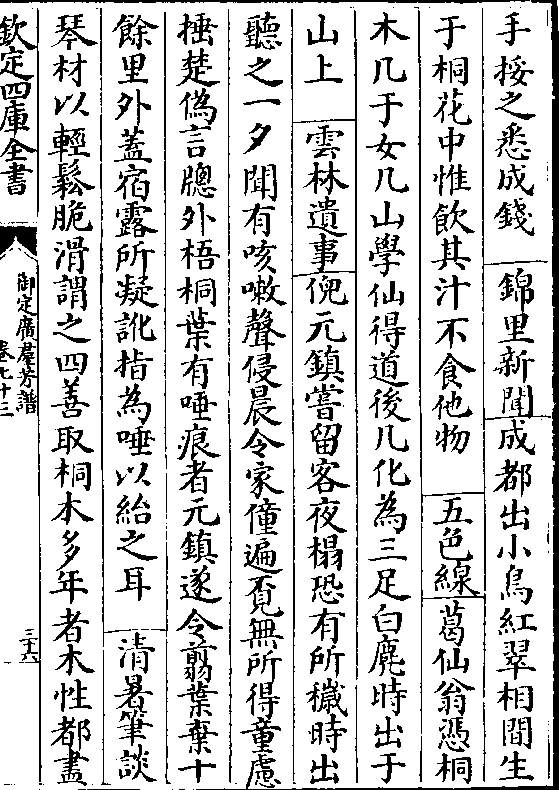 手挼之悉成錢　錦里新聞成都出小鳥紅翠相間生
于桐花中惟飲其汁不食他物　五色線葛仙翁憑桐
木几于女几山學仙得道後几化為三足白麂時出于
山上　雲林遺事倪元鎮嘗留客夜榻恐有所穢時出
聽之一夕聞有咳嗽聲侵晨令家僮遍覔無所得童慮
捶楚偽言牕外梧桐葉有唾痕者元鎮遂令翦葉棄十
餘里外蓋宿露所凝訛指為唾以紿之耳　清暑筆談
琴材以輕鬆脆滑謂之四善取桐木多年者木性都盡
欽定四庫全書
御定廣羣芳譜
卷七十三
三十六